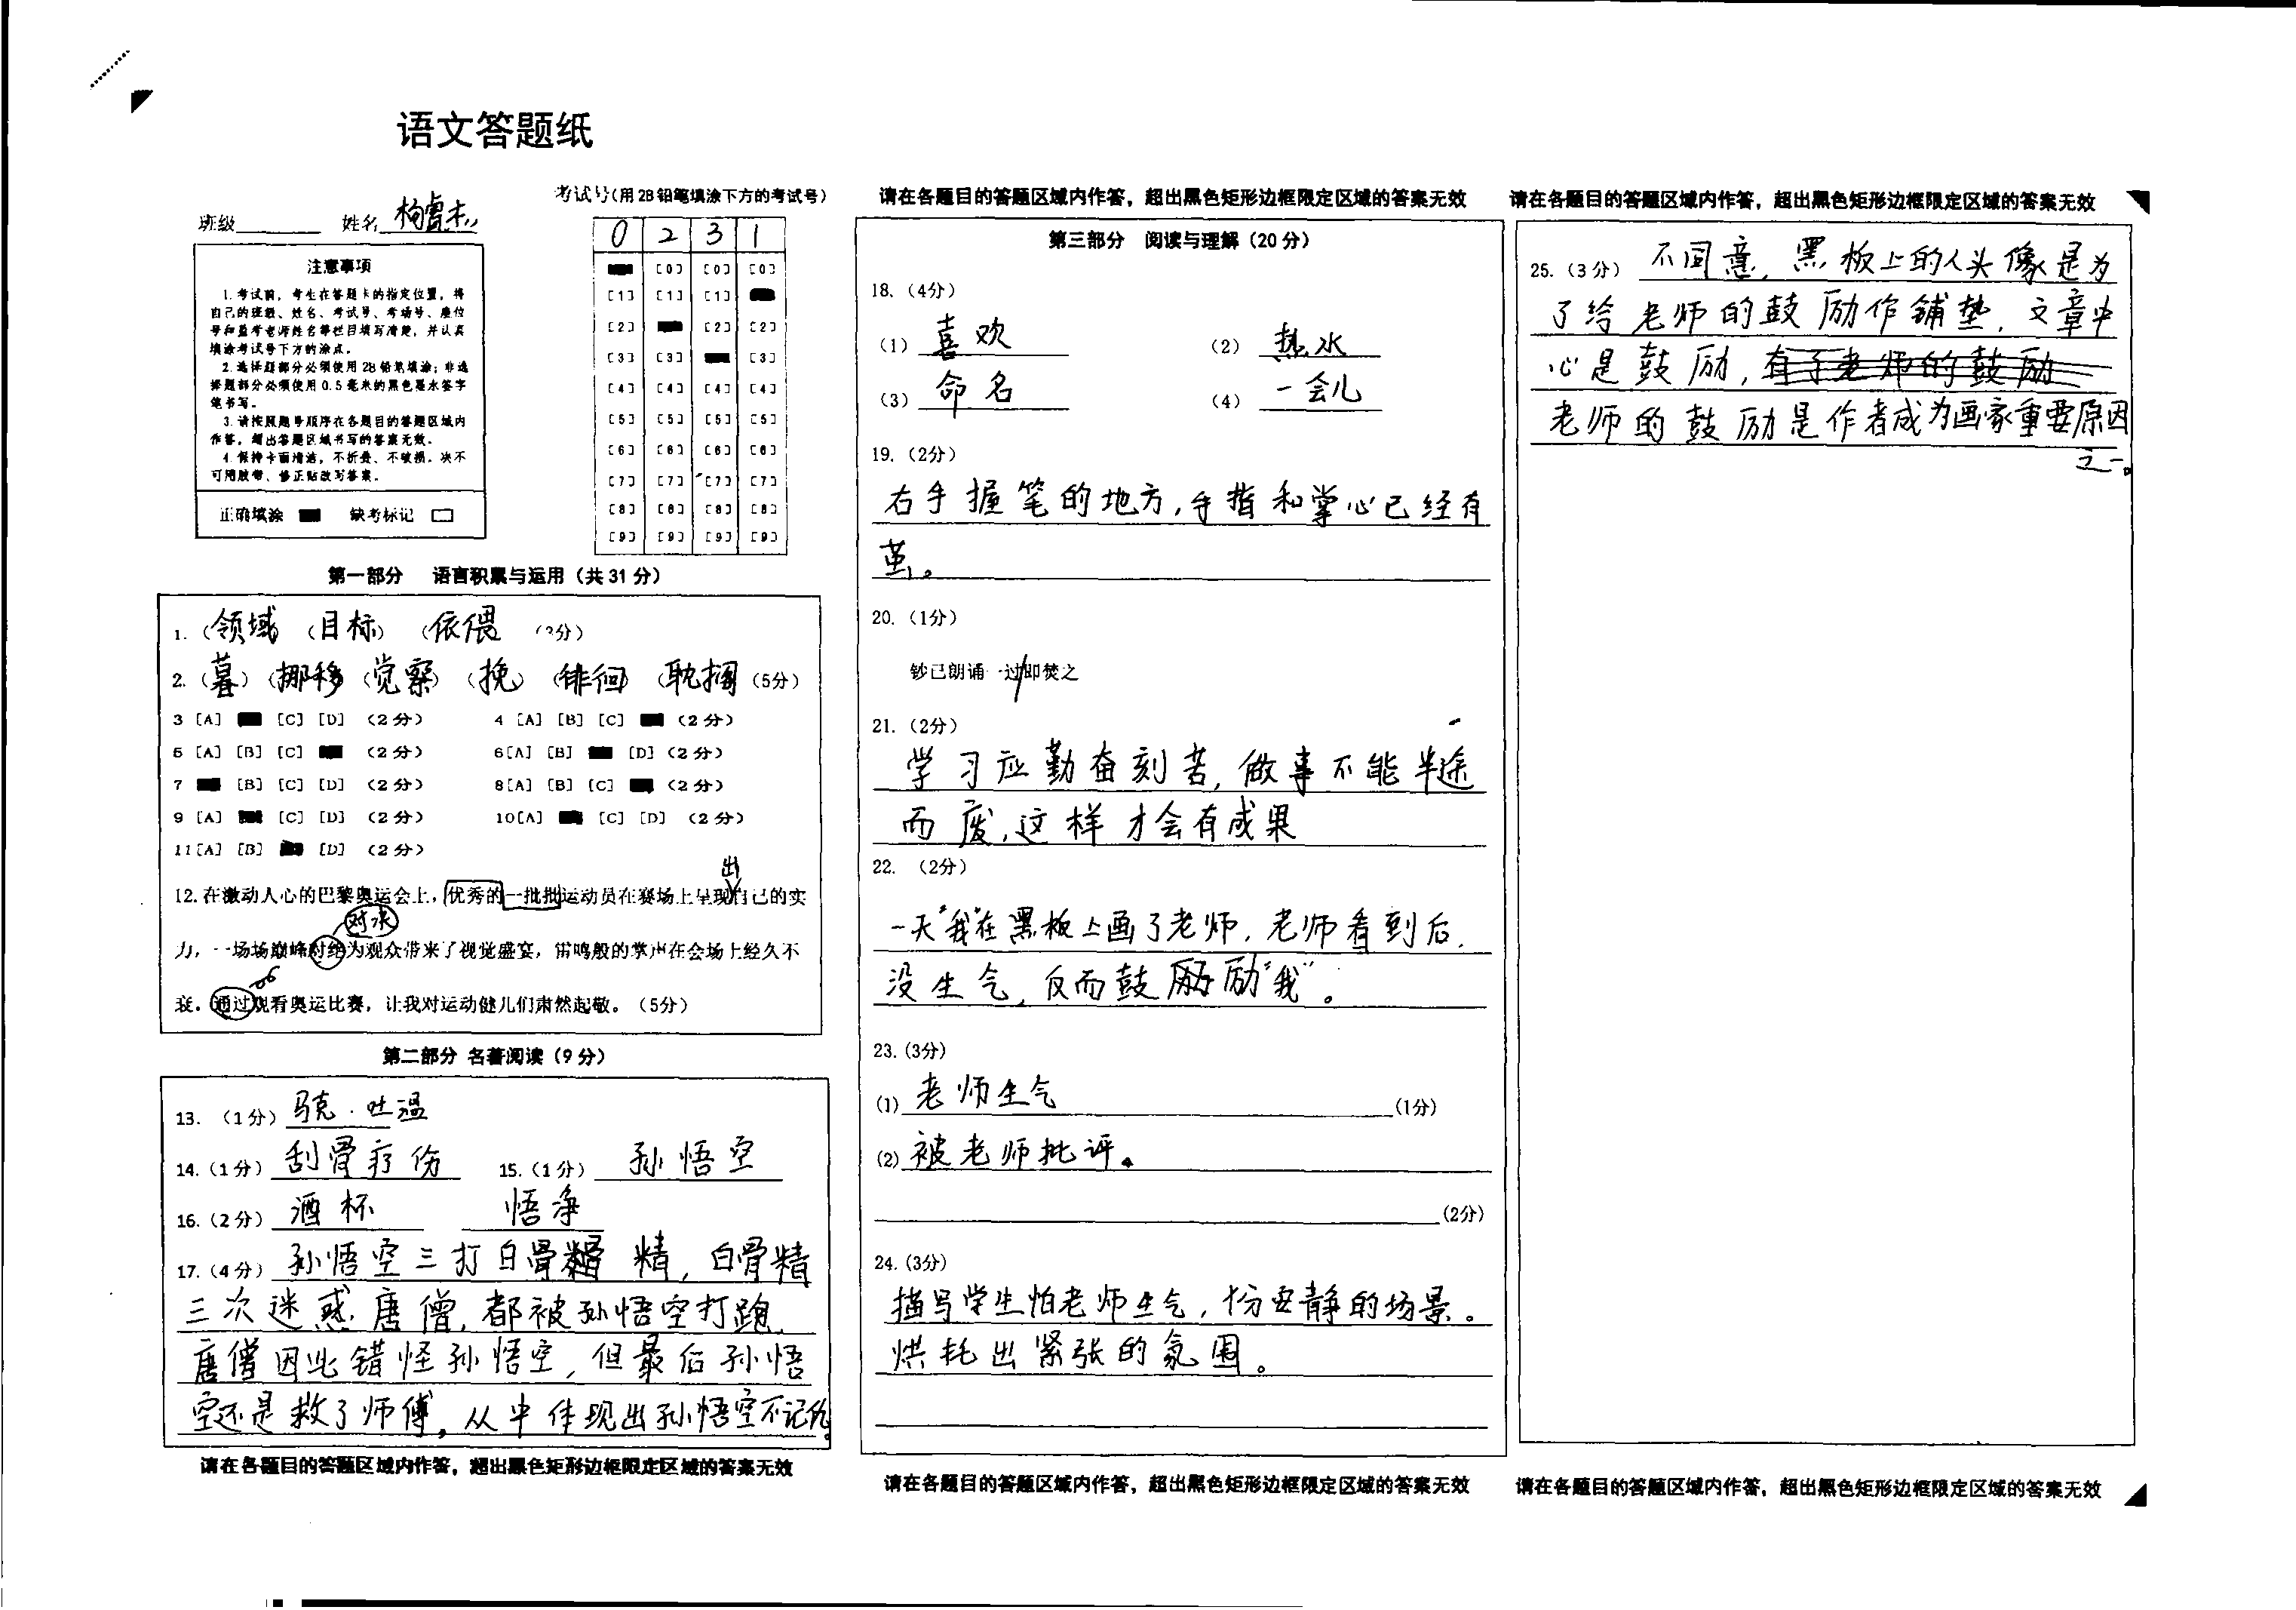 语文答题纸
班级 姓名 杨睿杰
考试号(用2B铅笔填涂下方的考试号)
0 2 3 1
[0] [0] [0]
[1] [1] [1]
[2] [2] [2]
[3] [3] [3]
[4] [4] [4] [4]
[5] [5] [5] [5]
[6] [6] [6] [6]
[7] [7] [7] [7]
[8] [8] [8] [8]
[9] [9] [9] [9]
注意事项
1.考试前,考生在答题卡的指定位置,将
自己的班级、姓名、考试号、考场号、座位
号和监考老师姓名等栏目填写清楚,并认真
填涂考试号下方的涂点。
2.选择题部分必须使用2B铅笔填涂;非选
择题部分必须使用0.5毫米的黑色墨水签字
笔书写。
3.请按照题号顺序在各题目的答题区域内
作答,超出答题区域书写的答案无效。
4.保持卡面清洁,不折叠、不破损。决不
可用胶带、修正贴改写答案。
正确填涂 缺考标记
第一部分 语言积累与运用(共31分)
1.(领域)(目标)(依偎)(3分)
2.(暮)(挪移)(觉察)(挽)(徘徊)(耽搁)(5分)
3 [A] [C] [D] (2分) 4 [A] [B] [C] (2分)
5 [A] [B] [C] (2分) 6[A] [B] [D] (2分)
7 [B] [C] [D] (2分) 8[A] [B] [C] (2分)
9 [A] [C] [D] (2分) 10[A] [C] [D] (2分)
11[A] [B] [D] (2分)
出
12.在激动人心的巴黎奥运会上,优秀的一批批运动员在赛场上呈现自己的实
对决
力,一场场巅峰对绝为观众带来了视觉盛宴,雷鸣般的掌声在会场上经久不
衰。通过观看奥运比赛,让我对运动健儿们肃然起敬。(5分)
第二部分 名著阅读(9分)
13.(1分)马克·吐温
14.(1分)刮骨疗伤 15.(1分)孙悟空
16.(2分)酒杯 悟净
17.(4分)孙悟空三打白骨精,白骨精
三次迷惑唐僧,都被孙悟空打跑,
唐僧因此错怪孙悟空,但最后孙悟
空还是救了师傅,从中体现出孙悟空不记仇。
请在各题目的答题区域内作答,超出黑色矩形边框限定区域的答案无效
请在各题目的答题区域内作答,超出黑色矩形边框限定区域的答案无效
第三部分 阅读与理解(20分)
18.(4分)
(1)喜欢 (2)热水
(3)命名 (4)一会儿
19.(2分)
右手握笔的地方,手指和掌心已经有
茧。
20.(1分)
钞已朗诵一过/即焚之
21.(2分)
学习应勤奋刻苦,做事不能半途
而废,这样才会有成果
22.(2分)
一天"我"在黑板上画了老师,老师看到后,
没生气,反而鼓励"我"。
23.(3分)
(1)老师生气(1分)
(2)被老师批评。
(2分)
24.(3分)
描写学生怕老师生气,十分安静的场景。
烘托出紧张的氛围。
请在各题目的答题区域内作答,超出黑色矩形边框限定区域的答案无效
请在各题目的答题区域内作答,超出黑色矩形边框限定区域的答案无效
25.(3分)不同意,黑板上的人头像是为
了给老师的鼓励作铺垫,文章中
心是鼓励,有了老师的鼓励
老师的鼓励是作者成为画家重要原因
之一。
请在各题目的答题区域内作答,超出黑色矩形边框限定区域的答案无效